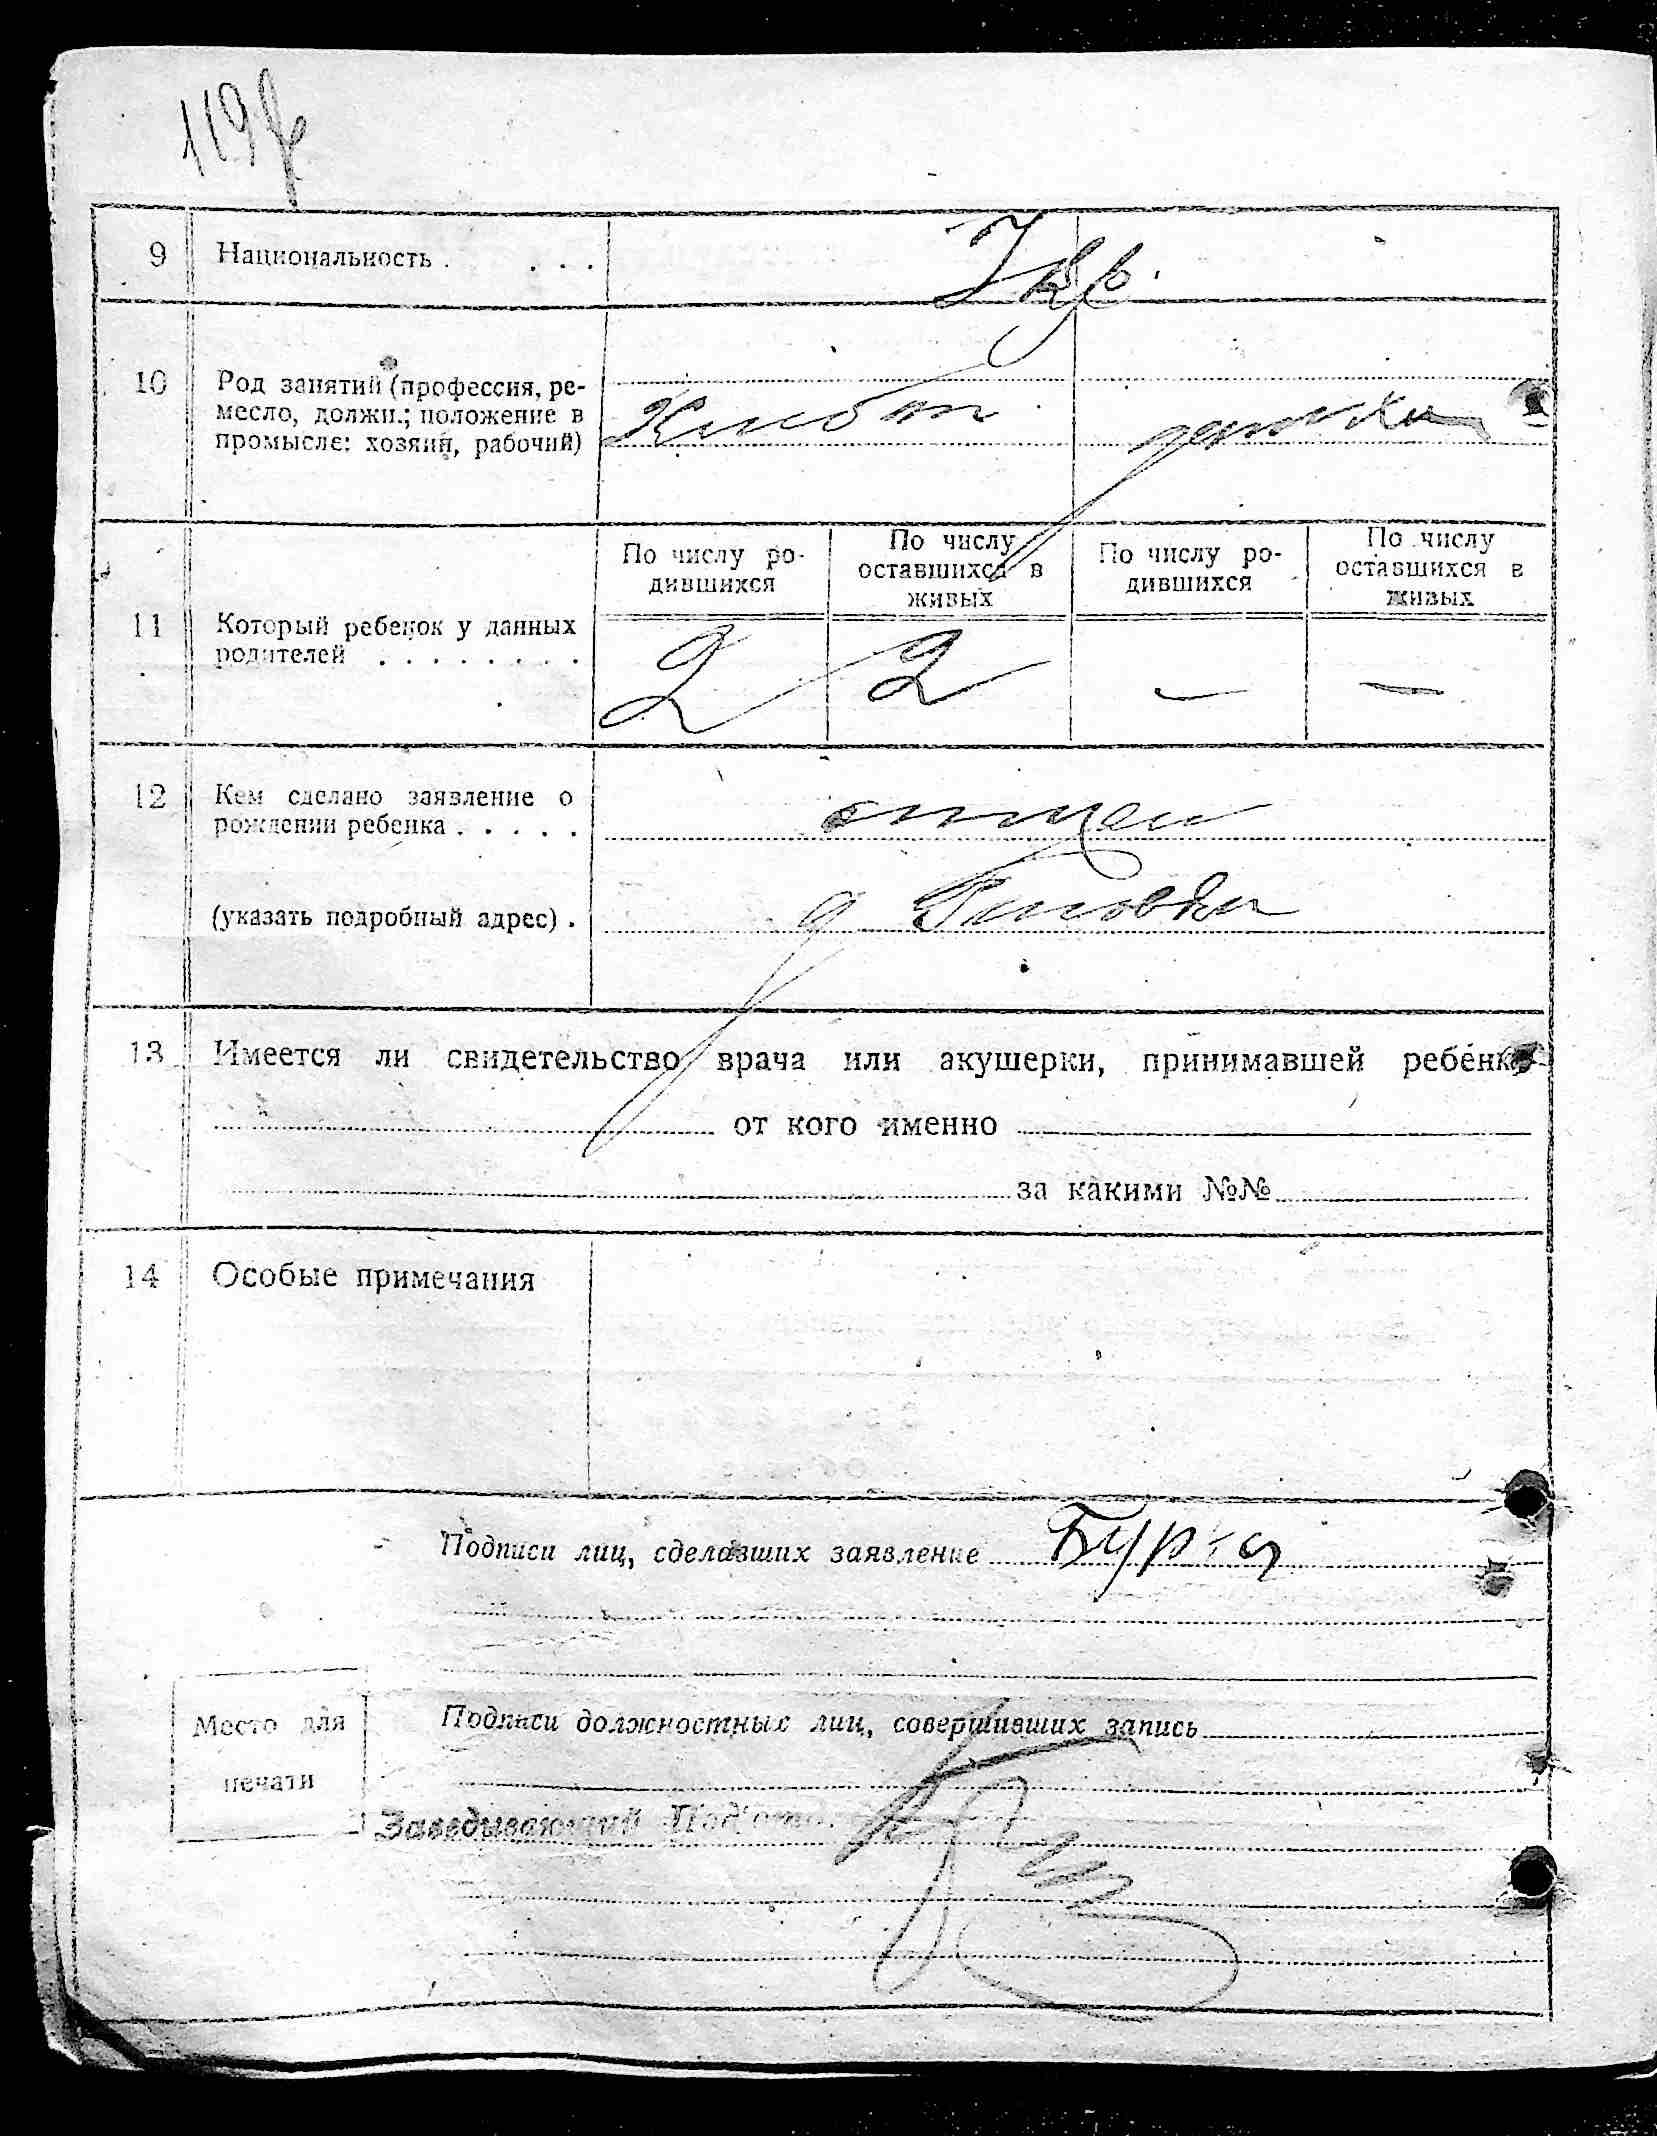 119
9 Национальность . . . . Укр.
10 Род занятий (профессия, ре-
месло, должн.; положение в
промысле: хозяин, рабочий)
Хлебоп.
11 Который ребенок у данных
родителей . . . . . . . .
По числу ро-
дившихся
По числу
оставшихся в
живых
По числу ро-
дившихся
По числу
оставшихся в
живых
2 2 — —
12 Кем сделано заявление о
рождении ребенка . . . . .
отцем
(указать подробный адрес) .
13 Имеется ли свидетельство врача или акушерки, принимавшей ребенка
от кого именно
за какими №№
14 Особые примечания
Подписи лиц, сделавших заявление
Место для
печати
Подписи должностных лиц, совершивших запись
Заведывающий